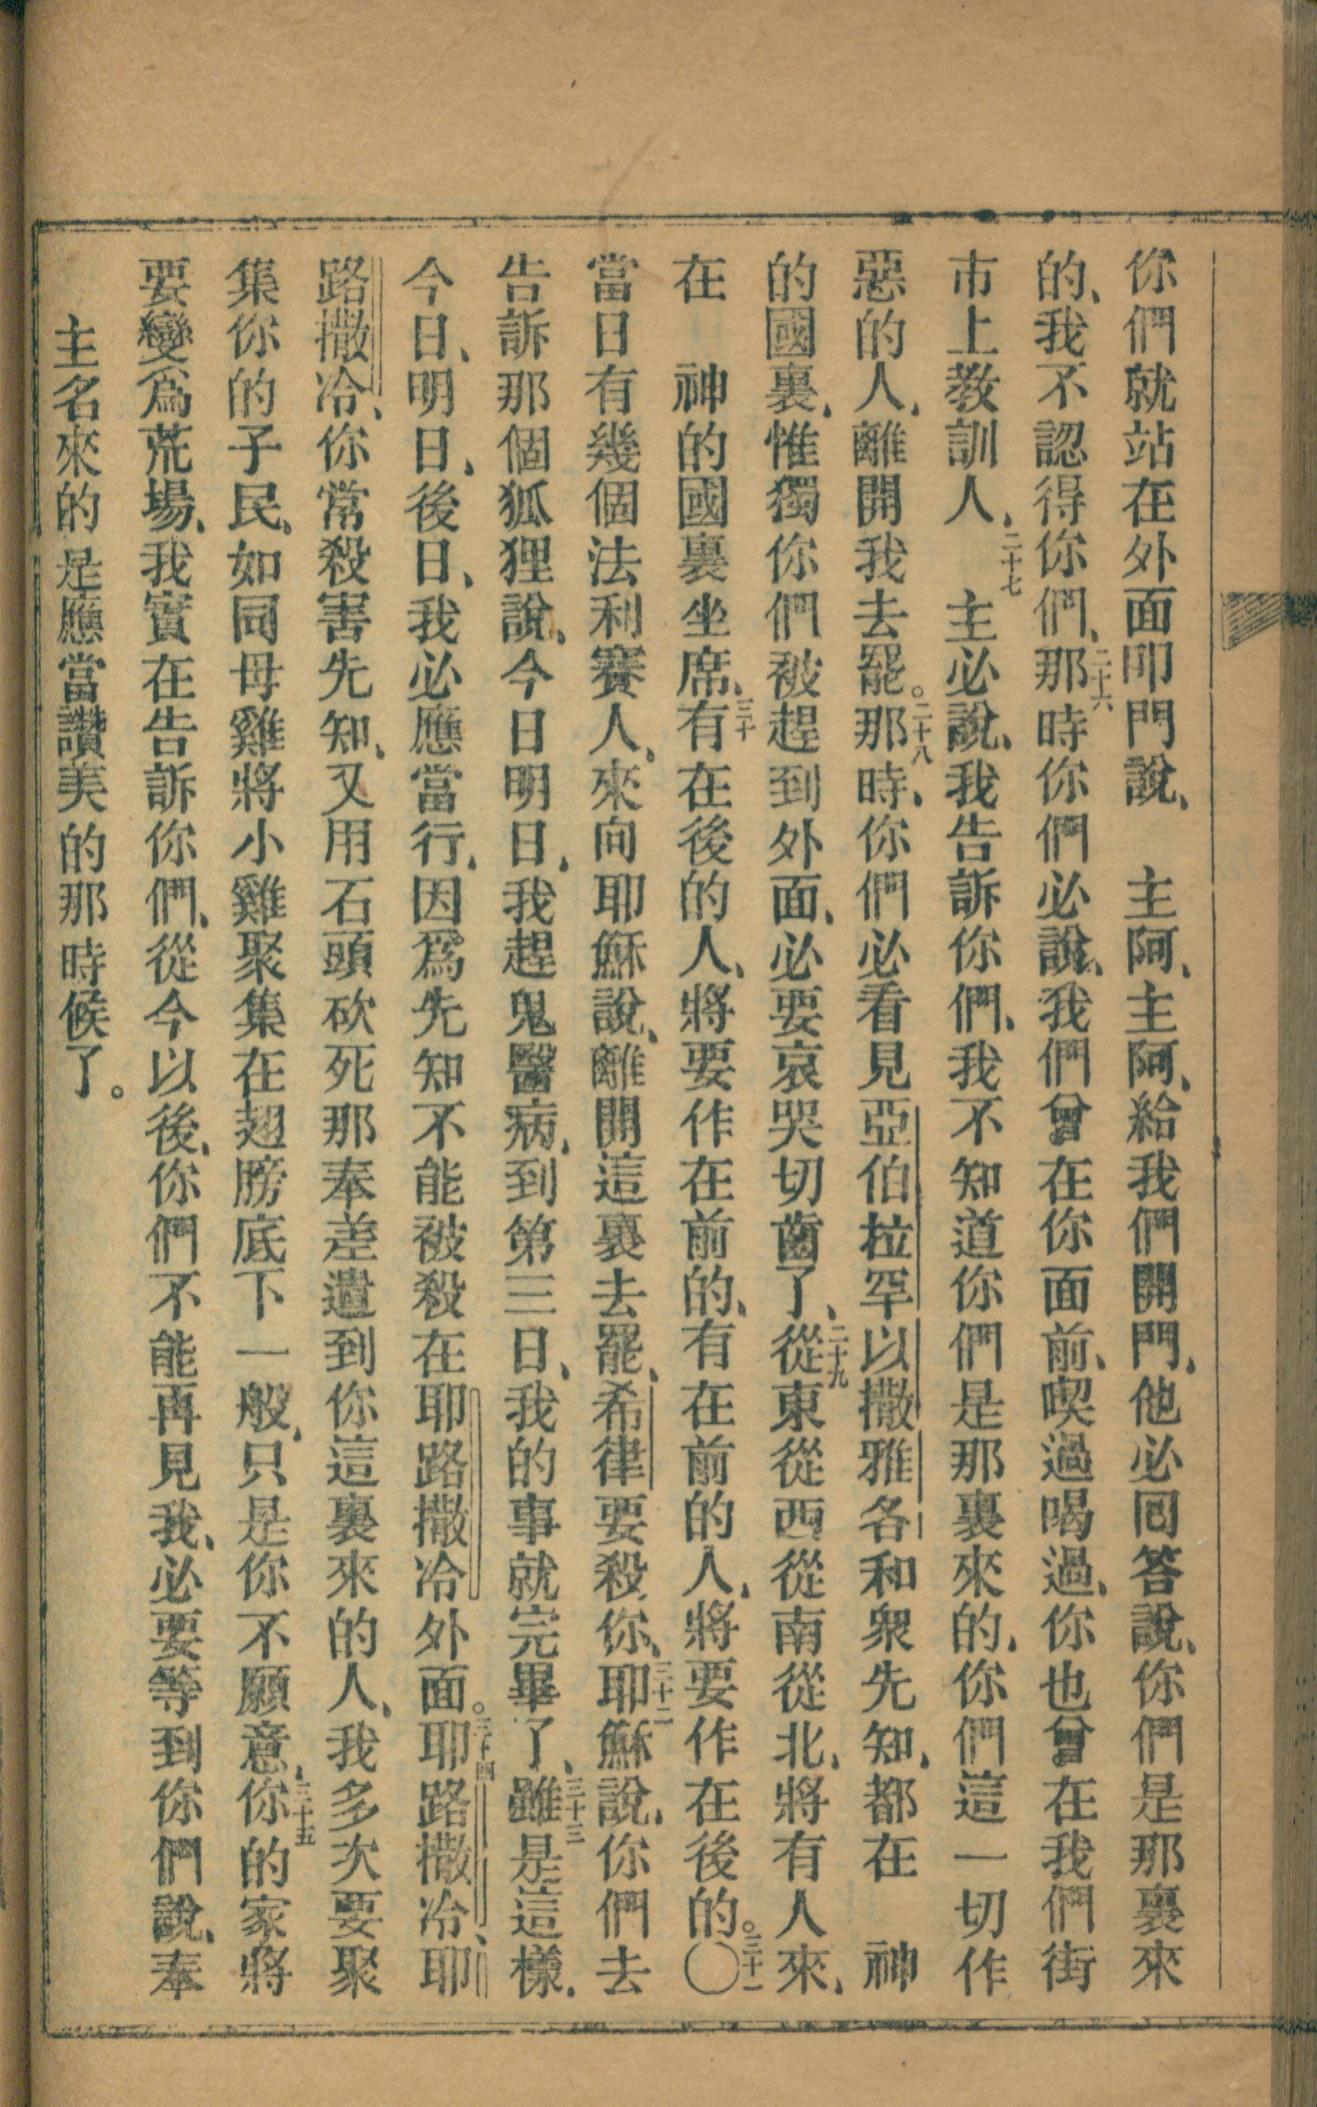 你們就站在外面叩門說、　主阿、主阿、給我們開門、他必回答說、你們是那裏來
的、我不認得你們、二十六那時你們必說、我們曾在你面前、喫過喝過、你也曾在我們街
市上教訓人、二十七　主必說、我告訴你們、我不知道你們是那裏來的、你們這一切作
惡的人、離開我去罷。二十八那時、你們必看見亞伯拉罕以撒雅各和衆先知、都在　神
的國裏、惟獨你們被趕到外面、必要哀哭切齒了、二十九從東從西從南從北、將有人來、
在　神的國裏坐席、三十有在後的人、將要作在前的、有在前的人、將要作在後的。〇三十一
當日有幾個法利賽人、來向耶穌說、離開這裏去罷、希律要殺你、三十二耶穌說、你們去
告訴那個狐狸說、今日明日、我趕鬼醫病、到第三日、我的事就完畢了、三十三雖是這樣、
今日、明日、後日、我必應當行、因爲先知不能被殺在耶路撒冷外面。三十四耶路撒冷、耶
路撒冷、你常殺害先知、又用石頭砍死那奉差遣到你這裏來的人、我多次要聚
集你的子民、如同母雞將小雞聚集在翅膀底下一般、只是你不願意、三十五你的家將
要變爲荒場、我實在告訴你們、從今以後、你們不能再見我、必要等到你們說、奉
主名來的是應當讚美的那時候了。